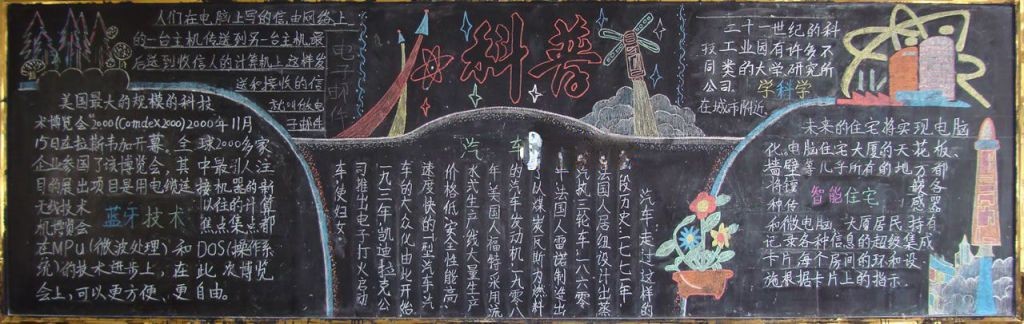 科普
人们在电脑上写的信由网络上
的一台主机传送到另一台主机最
后送到收信人的计算机上这样发
送和接收的信
就叫做电
子邮件
电子邮件
美国最大的规模的科技
术博览会"2000(Comdex2000)2000年11月
15日在拉斯韦加开幕、全球2000多家
企业参国了该博览会,其中最引人注
目的展出项目是用电缆连接机器的新
无线技术
蓝牙技术
以往的计算
机博览会
焦点集点都
在MPu(微波处理)和DOS(操作系
统)的技术进步上,在此次博览
会上,可以更方便、更自由。
汽车
汽车走过这样的
一段历史一七七二年
法国人居纽设计出蒸
汽机三轮车一八六零
年法国人雷诺制造出
以煤炭瓦斯为燃料
的汽车发动机一九零八
年美国人福特采用流
水式生产线大量生产
价格低安全性能高
速度快的T型汽车汽
车的大众化由此开始
一九一二年凯迪轻克公
司推出电子打火启动
车使妇女
二十一世纪的科
技工业园有许多不
同类的大学研究所
公司
学科学
在城市附近.
未来的住宅将实现电脑
化.电脑住宅大厦的天花板、
墙壁等几乎所有的地方都
将镶
智能住宅
种传
各
感器
和微电脑,大厦居民持有
记录各种信息的超级集成
卡片每个房间的环和设
施根据卡片上的指示.